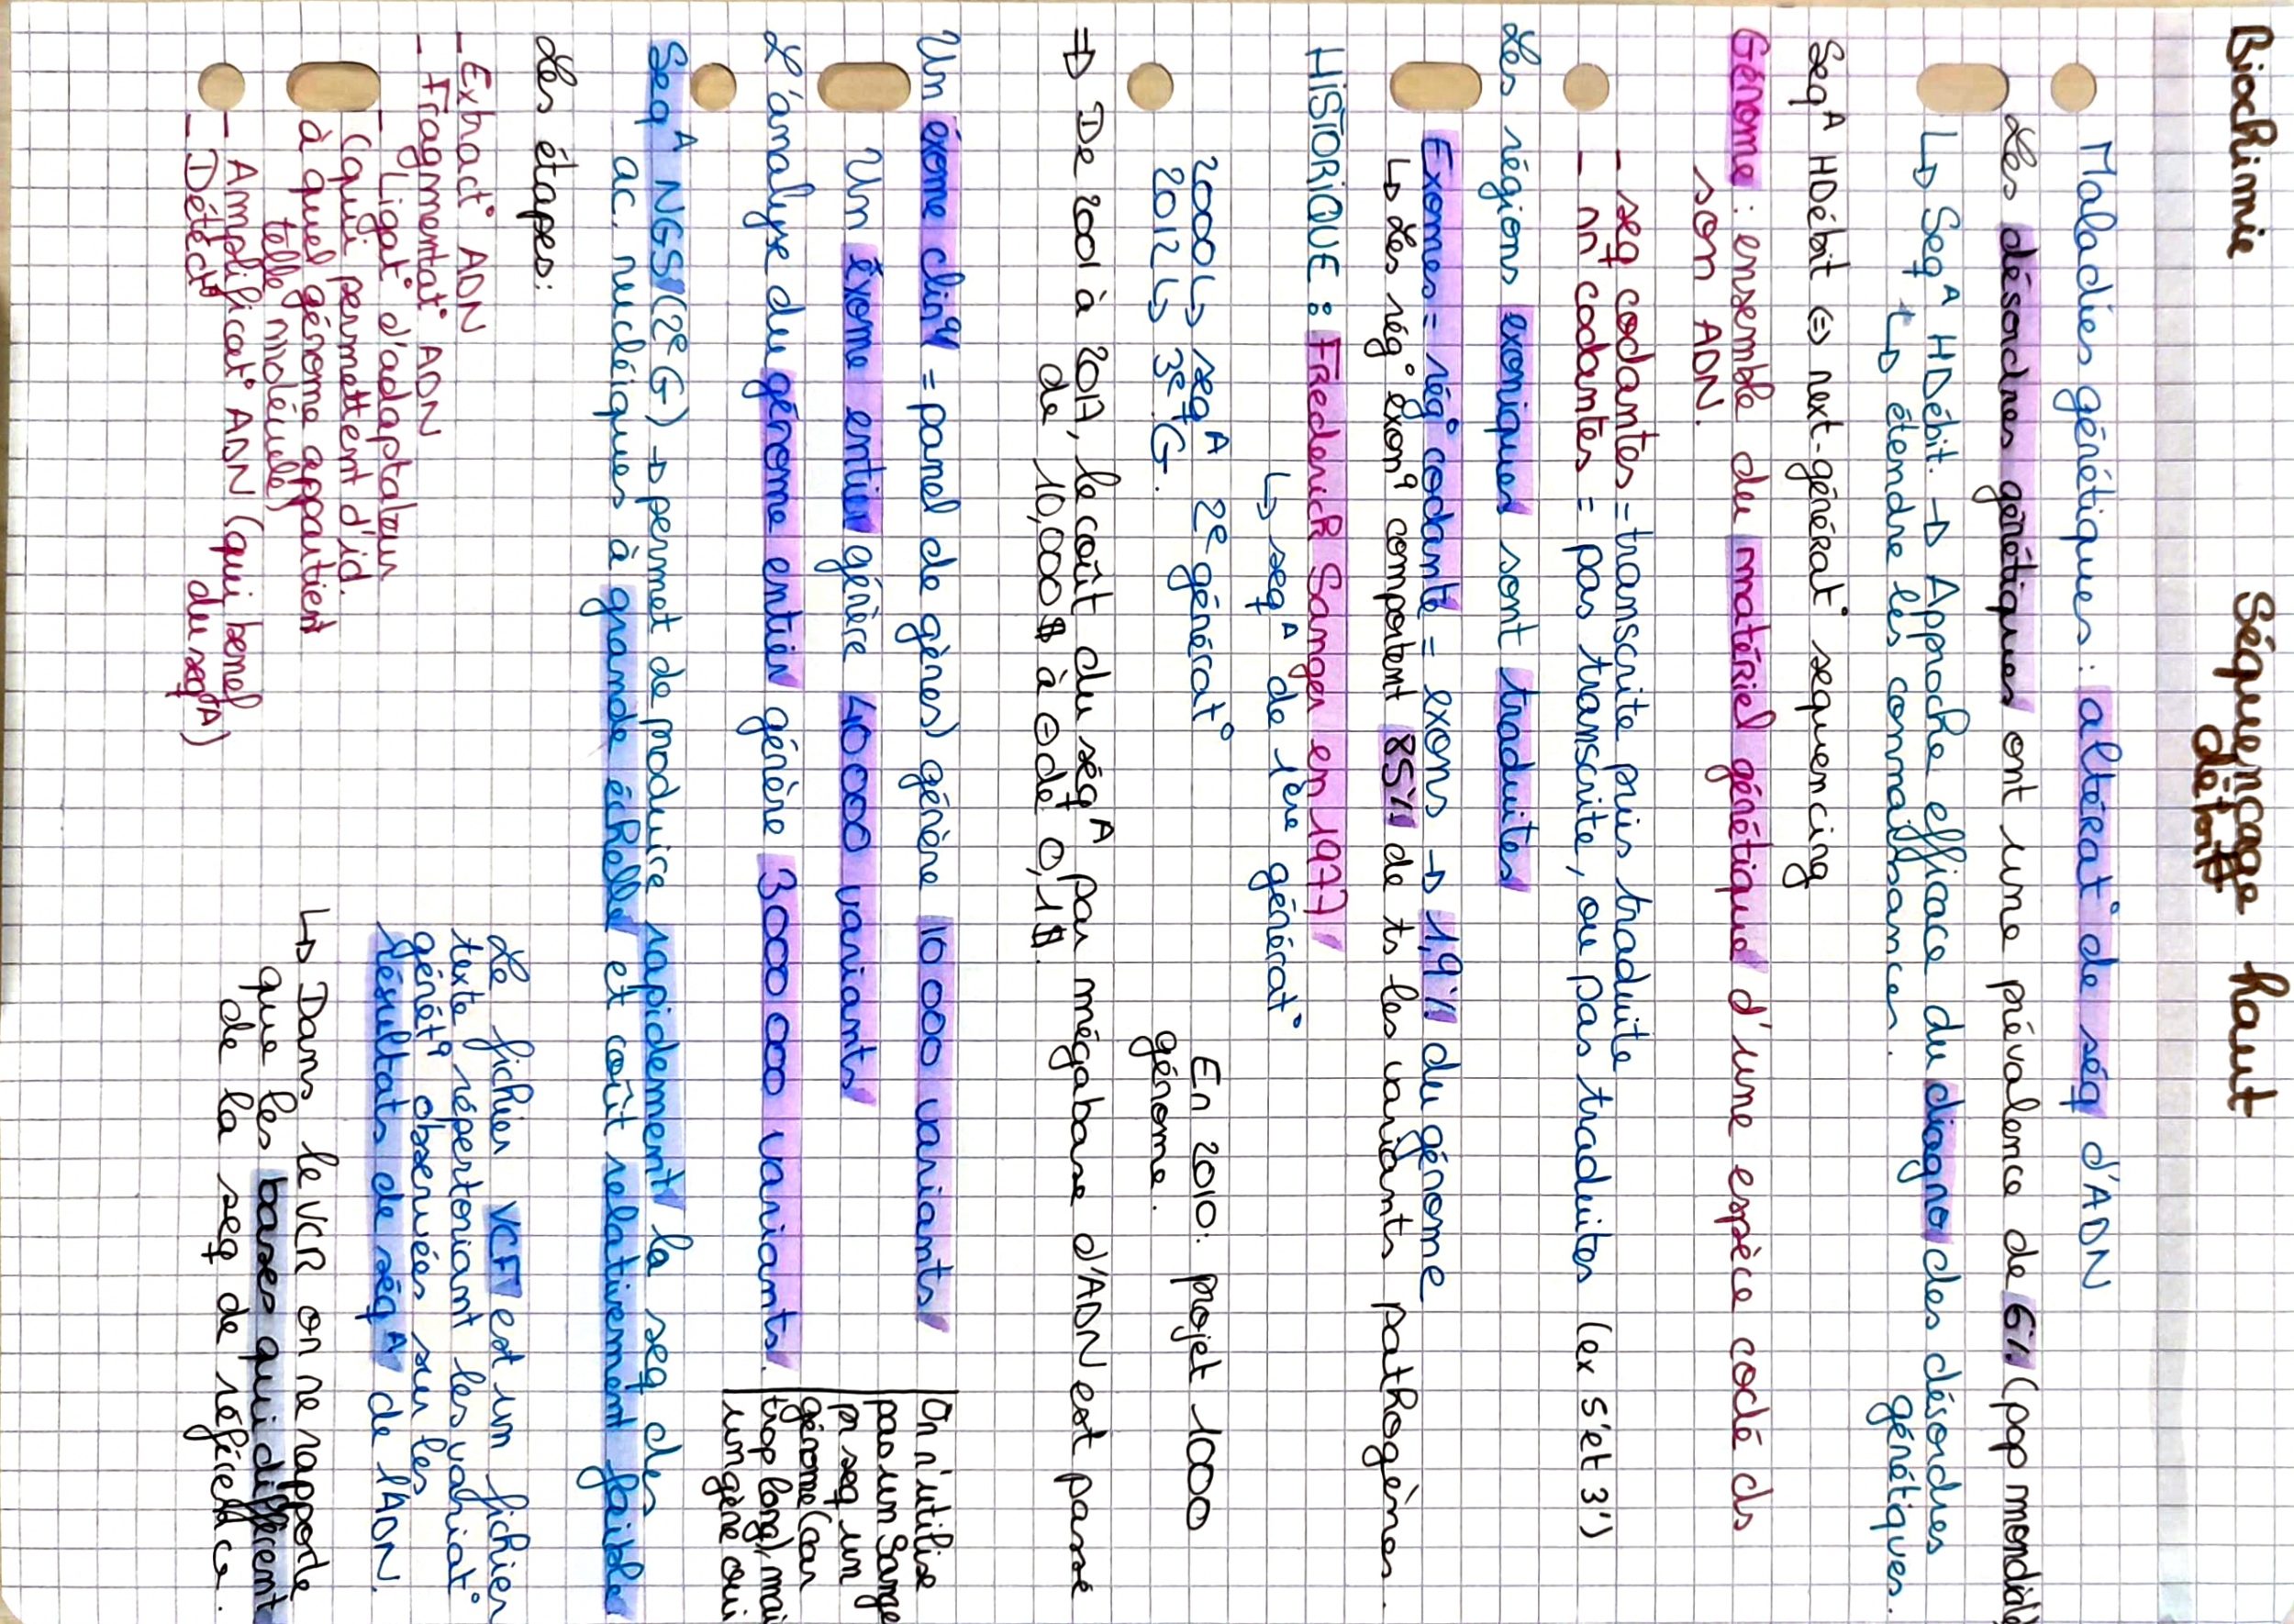 Biochimie
Séquençage haut
débit
Maladies génétiques : altérat° de séq d'ADN
Les désordres génétiques ont une prévalence de 6% (pop mondiale
↳ Seq^A HDébit. → Approche efficace du diagno des désordres
génétiques.
↳ étendre les connaissances.
Seq^A HDébit ⇔ next-générat° sequencing
Génome : ensemble du matériel génétique d'une espèce codé ds
son ADN.
- seq codantes = transcrite puis traduite
- nn codantes = pas transcrite, ou pas traduites (ex 5'et 3')
Les régions exoniques sont traduites
Exomes = rég° codante = exons → 1,9% du génome
↳ Les rég° exon^q comportent 85% de ts les variants pathogènes.
HISTORIQUE : Frederick Sanger en 1977
↳ seq^A de 1ère générat°
2000 ↳ seq^A 2e générat°
2012 ↳ 3e G.
En 2010: projet 1000
génome.
⇒ De 2001 à 2017, le coût du séq^A par mégabase d'ADN est passé
de 10,000$ à 0,1$.
Un éxome clin^q = panel de gènes) génère 10 000 variants
Un éxome entier génère 40 000 variants
L'analyse du génome entier génère 3 000 000 variants.
On n'utilise
pas un Sange
pr seq un
génome (car
trop long), mai
un gène oui
Seq^A NGS (2e G) → permet de produire rapidement la seq des
ac. nucléiques à grande échelle et coût relativement faible
Les étapes:
- Extract° ADN
- Fragmentat° ADN
- Ligat° d'adaptateur
(qui permettent d'id.
à quel génome appartient
telle molécule)
- Amplificat° ADN (qui benef
du seq^A)
- Détect°
Le fichier VCF est un fichier
texte répertoriant les variat°
génét^q observées sur les
résultats de séq^A de l'ADN.
↳ Dans le VCR on ne rapporte
que les bases qui diffèrent
de la seq de référence.